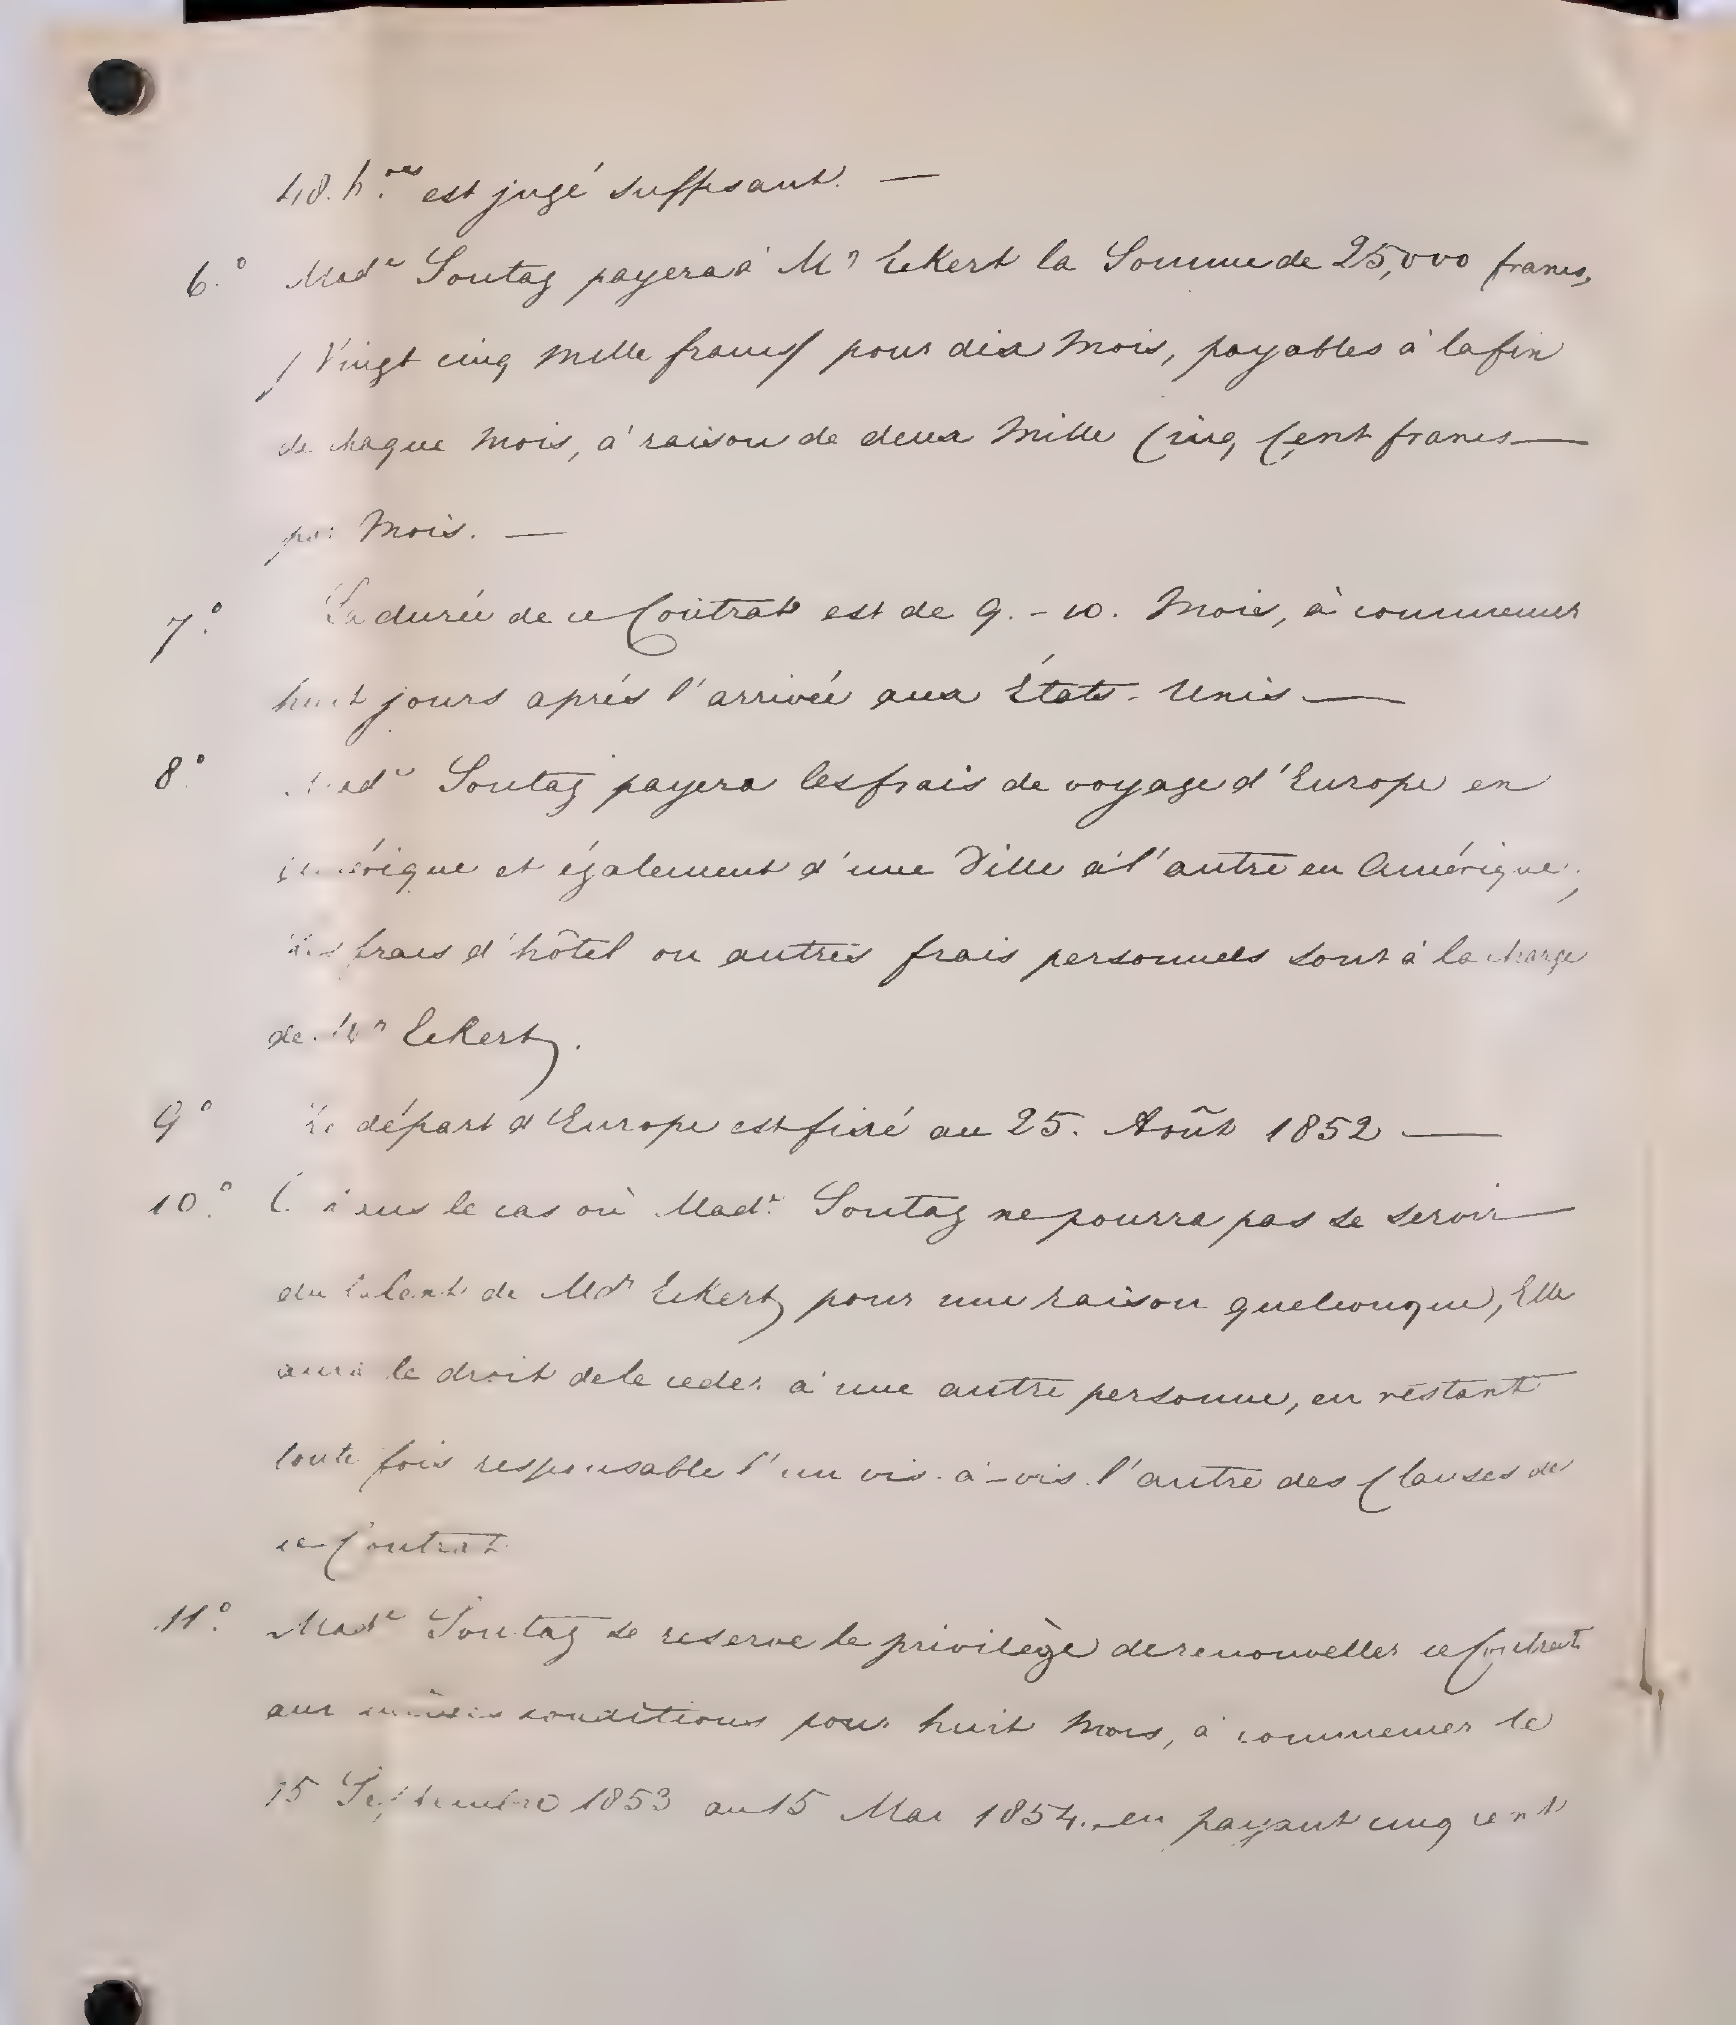 48. h.res est jugé suffisant. —
6.° Made Sontag payera à Mr Eckert la Somme de 25,000 francs,
/ Vingt cinq mille francs/ pour dix Mois, payables à la fin
de chaque Mois, à raison de deux Mille Cinq Cent francs —
par Mois. —
7.° La durée de ce Contrat est de 9. - 10. Mois, à commencer
huit jours aprés l'arrivée aux États-Unis —
8.° Made Sontag payera les frais de voyage d'Europe en
Amérique et également d'une Ville à l'autre en Amérique;
les frais d'hôtel ou autres frais personnels sont à la charge
de Mr Eckert.
9° Le départ d'Europe est fixé au 25. Août 1852 —
10.° Dans le cas où Made Sontag ne pourra pas se servir
du talent de Mr Eckert, pour une raison quelconque, Elle
aura le droit de le ceder à une autre personne, en restant
toute fois responsable l'un vis-à-vis l'autre des Clauses de
ce Contrat.
11.° Made Sontag se reserve le privilège de renouveller ce Contrat
aux mêmes conditions pour huit Mois, à commencer le
15 Septembre 1853 au 15 Mai 1854. en payant cinq cent